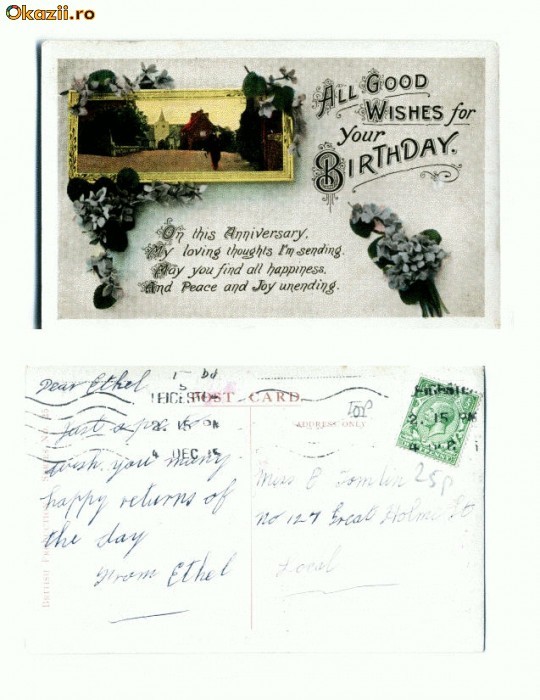 Okazii.ro
ALL GOOD
WISHES for
your
BIRTHDAY.
On this Anniversary,
My loving thoughts I'm sending.
May you find all happiness,
And Peace and Joy unending.
Dear Ethel
LEICESTER
POST CARD.
2. 15 PM
4 DEC 15
ADDRESS ONLY
Just a
wish you many
happy returns of
the day
From Ethel
Miss E Tomlin
25p
No 127 Great Holme St
Local
2. 15 PM
BRITISH